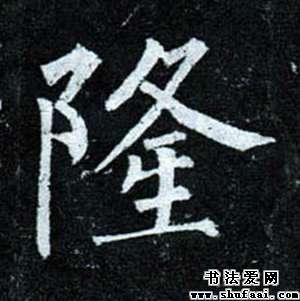 隆
书法爱网
www.shufaai.com